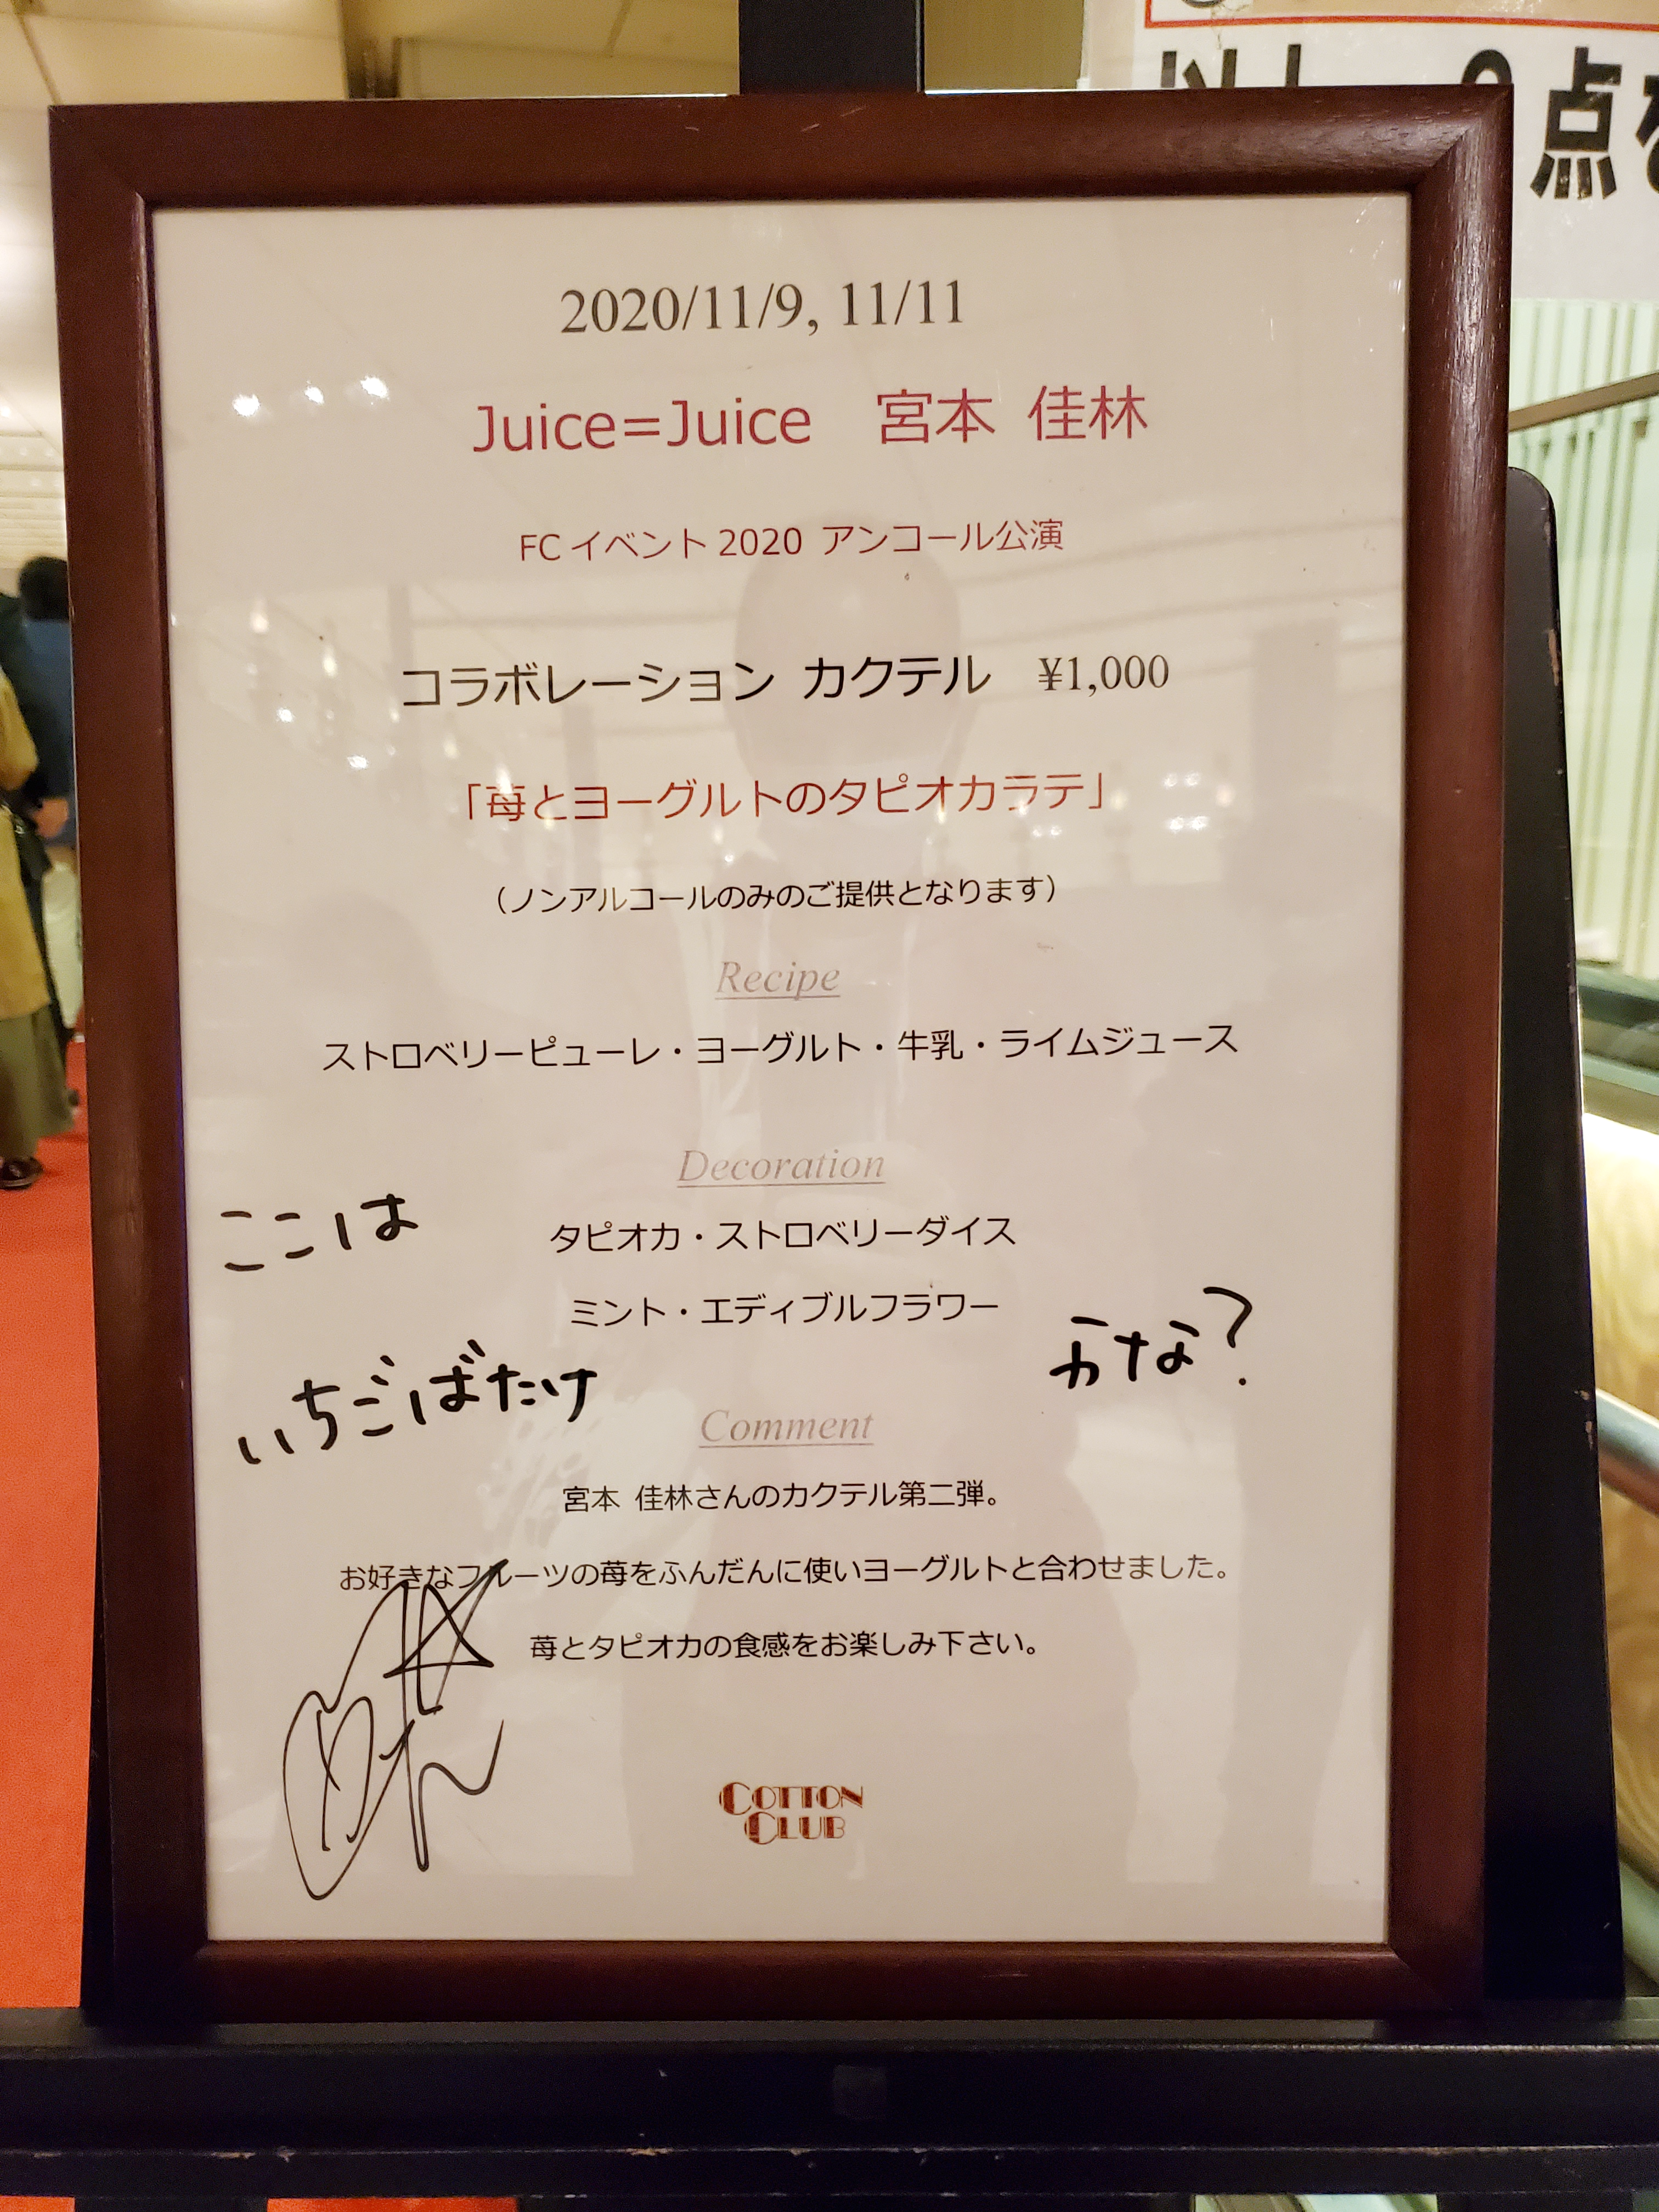 点を
2020/11/9, 11/11
Juice=Juice 宮本 佳林
FCイベント2020 アンコール公演
コラボレーション カクテル ¥1,000
「苺とヨーグルトのタピオカラテ」
（ノンアルコールのみのご提供となります）
Recipe
ストロベリーピューレ・ヨーグルト・牛乳・ライムジュース
Decoration
ここは
タピオカ・ストロベリーダイス
ミント・エディブルフラワー
いちごばたけ
かな?
Comment
宮本 佳林さんのカクテル第二弾。
お好きなフルーツの苺をふんだんに使いヨーグルトと合わせました。
苺とタピオカの食感をお楽しみ下さい。
COTTON
CLUB